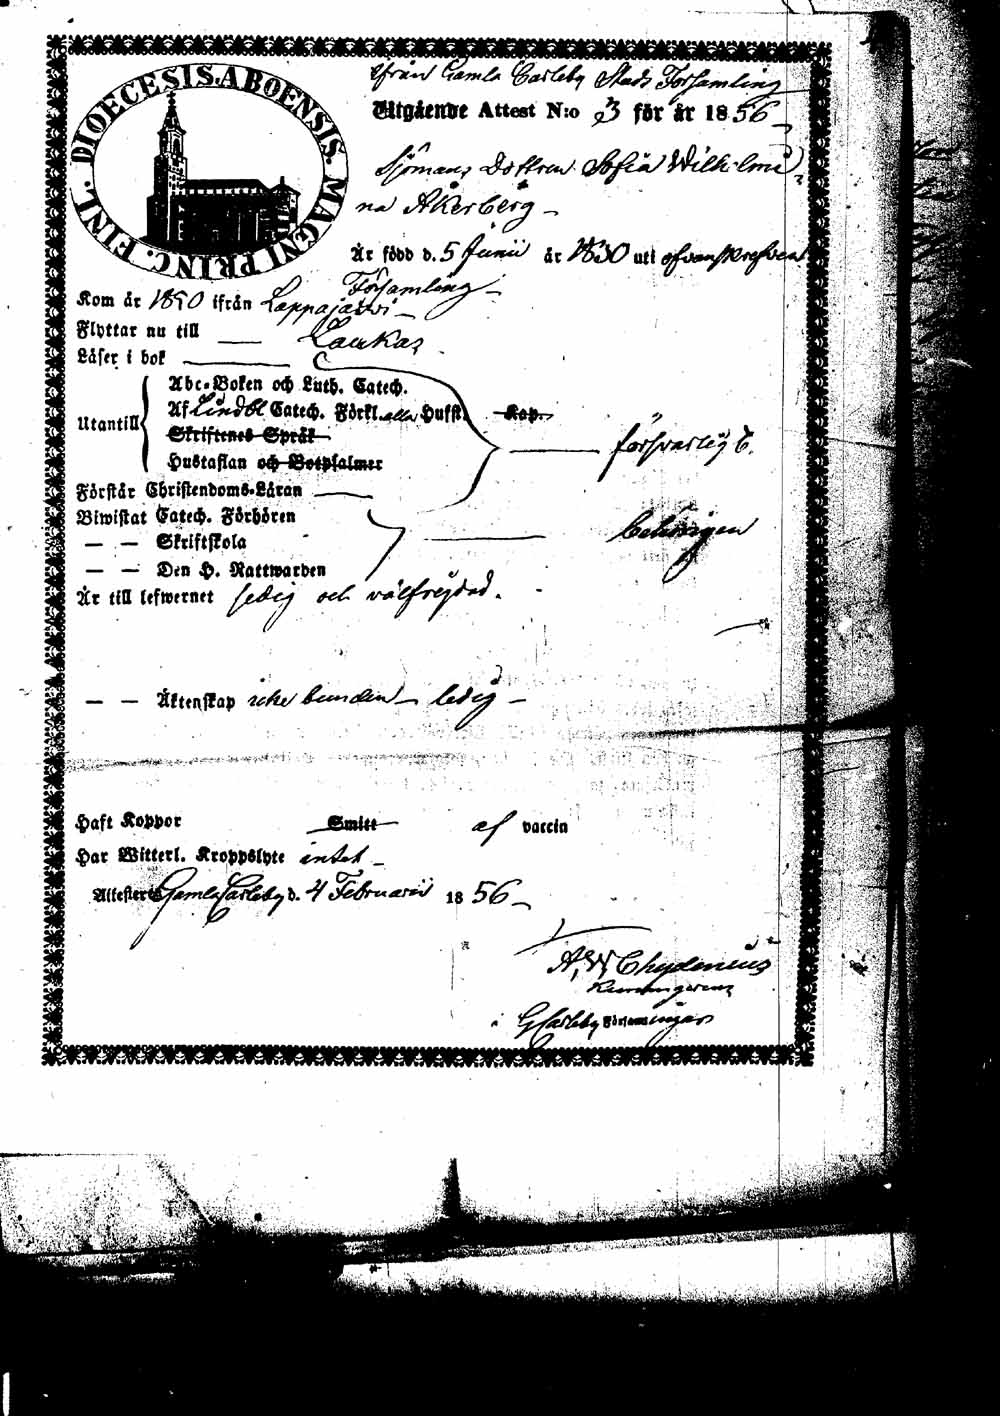 DIOECESIS. ABOENSIS. MAGNI PRINC. FINL.
ifrån Gamla Carleby Stads Församling
Utgående Attest N:o 3 för år 1856
Sjömans Dottren Sofia Wilhelmi-
na Åkerberg
Är född d. 5 Junii år 1830 uti ofvanskrefven
Församling
Kom år 1850 ifrån Lappajärvi
Flyttar nu till Laukas
Läser i bok
Utantill
Abc-Boken och Luth. Catech.
Af Lindbl Catech. Förkl. alla Hufst. Kap.
försvarligt.
Skriftenes Språk
Hustaflan och Botpsalmer
Förstår Christendoms-Läran
Biwistat Catech. Förhören
— — Skriftskola
behörigen
— — Den H. Nattwarden
Är till lefwernet ledig och välfrejdad.
— — Äktenskap icke bunden — ledig —
Haft Koppor Smitt af vaccin
Har Witterl. Kroppslyte intet
Attesteras Gamla Carleby d. 4 Februarii 1856
A, W Chydenius
i GCarleby Församlingar